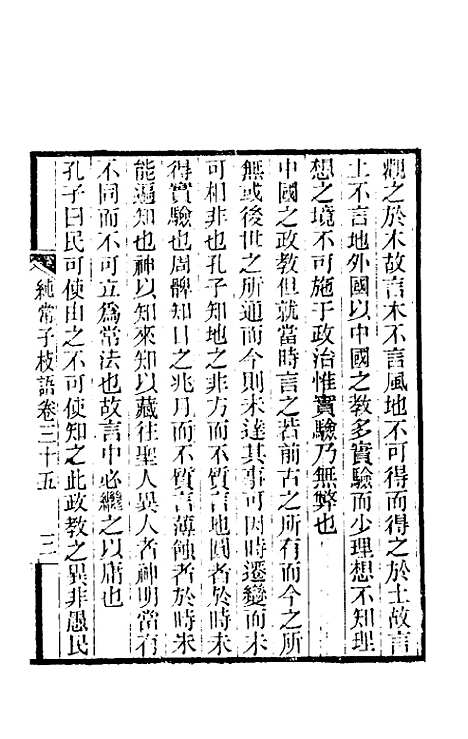 觀之於木故言木不言風地不可得而得之於土故言
土不言地外國以中國之教多實驗而少理想不知理
想之境不可施于政治惟實驗乃無弊也
中國之政教但就當時言之若前古之所有而今之所
無或後世之所通而今則未達其事可因時遷變而未
可相非也孔子知地之非方而不質言地圓者於時未
得實驗也周髀知日之兆月而不質言薄蝕者於時未
能遍知也神以知來知以藏往聖人異人者神明當有
不同而不可立爲常法也故言中必繼之以庸也
孔子曰民可使由之不可使知之此政教之異非愚民
純常子枝語卷三十五 三